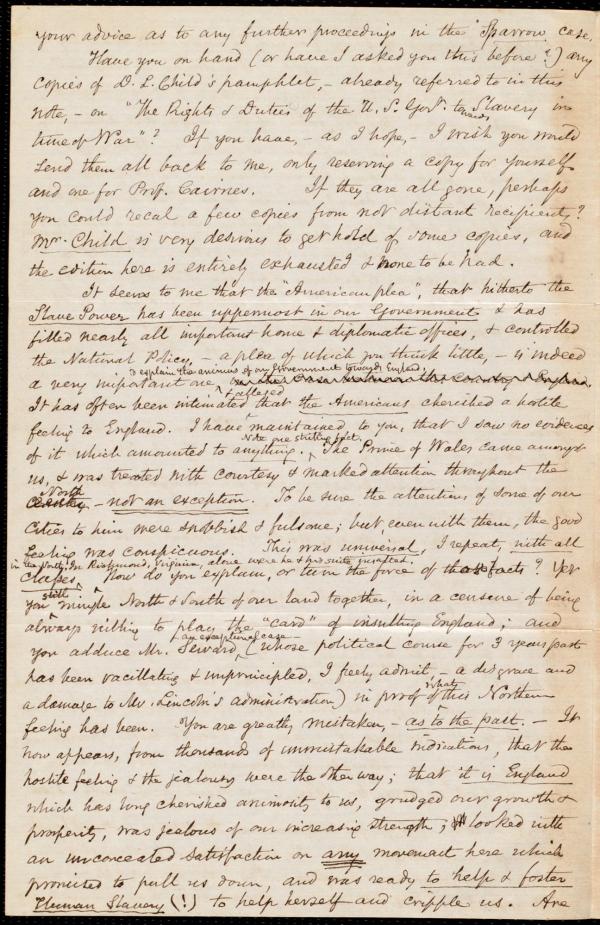 your advice as to any further proceedings in the Sparrow case.
Have you on hand (or have I asked you this before?) any
copies of D. L. Child's pamphlet, - already referred to in this
note, - on "The Rights & Duties of the U. S. Govt. towards Slavery in
time of War"? If you have, - as I hope, - I wish you would
send them all back to me, only reserving a copy for yourself
and one for Prof. Cairnes. If they are all gone, perhaps
you could recal a few copies from not distant recipients?
Mr. Child is very desirous to get hold of some copies, and
the edition here is entirely exhausted & none to be had.
It seems to me that the "American plea", that hitherto the
Slave Power has been uppermost in our Government & has
filled nearly all important home & diplomatic offices, & controlled
the National Policy, - a plea of which you think little, - is indeed
to explain the animus of our Government toward England.
a very important one,
& alleged
It has often been intimated that the Americans cherished a hostile
feeling to England. I have maintained to you, that I saw no evidences
Note one striking fact.
of it which amounted to anything. The Prince of Wales came amongst
us, & was treated with courtesy & marked attention throughout the
North
- not an exception. To be sure the attentions of some of our
Cities to him were snobbish & fulsome; but even with them, the good
feeling was conspicuous. This was universal, I repeat, with all
in the North. In Richmond, Virginia, alone were he & his suite insulted.
Classes. How do you explain, or turn the force of these facts? Yet
still
you mingle North & South of our land together, in a censure of being
always willing to play the "card" of insulting England; and
- an exceptional case -
you adduce Mr. Seward, (whose political course for 3 years past
has been vacillating & unprincipled, I freely admit, - a disgrace and
a damage to Mr. Lincoln's administration) in proof of what this Northern
feeling has been. You are greatly mistaken, - as to the past. - It
now appears, from thousands of unmistakable indications, that the
hostile feeling & the jealousy were the other way; that it is England
which has long cherished animosity to us, grudged our growth &
prosperity, was jealous of our increasing strength; looked with
an unconcealed satisfaction on any movement here which
promised to pull us down, and was ready to help & foster
Human Slavery (!) to help herself and cripple us. Are